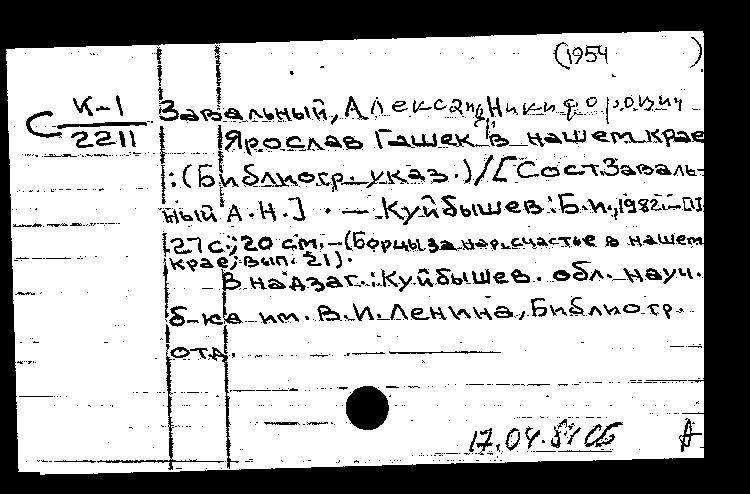 (1954 )
К-1
2211
Завальный, Александр Никифорович
Ярослав Гашек в нашем крае
: (Библиогр. указ.) / [Сост. Заваль-
ный А.Н.] . — Куйбышев: Б.и., 1982.—
27 с.; 20 см. — (Борцы за нар. счастье в нашем
крае; вып. 21).
В надзаг.: Куйбышев. обл. науч.
б-ка им. В.И. Ленина, Библиогр.
отд.
17.04.84 СБ